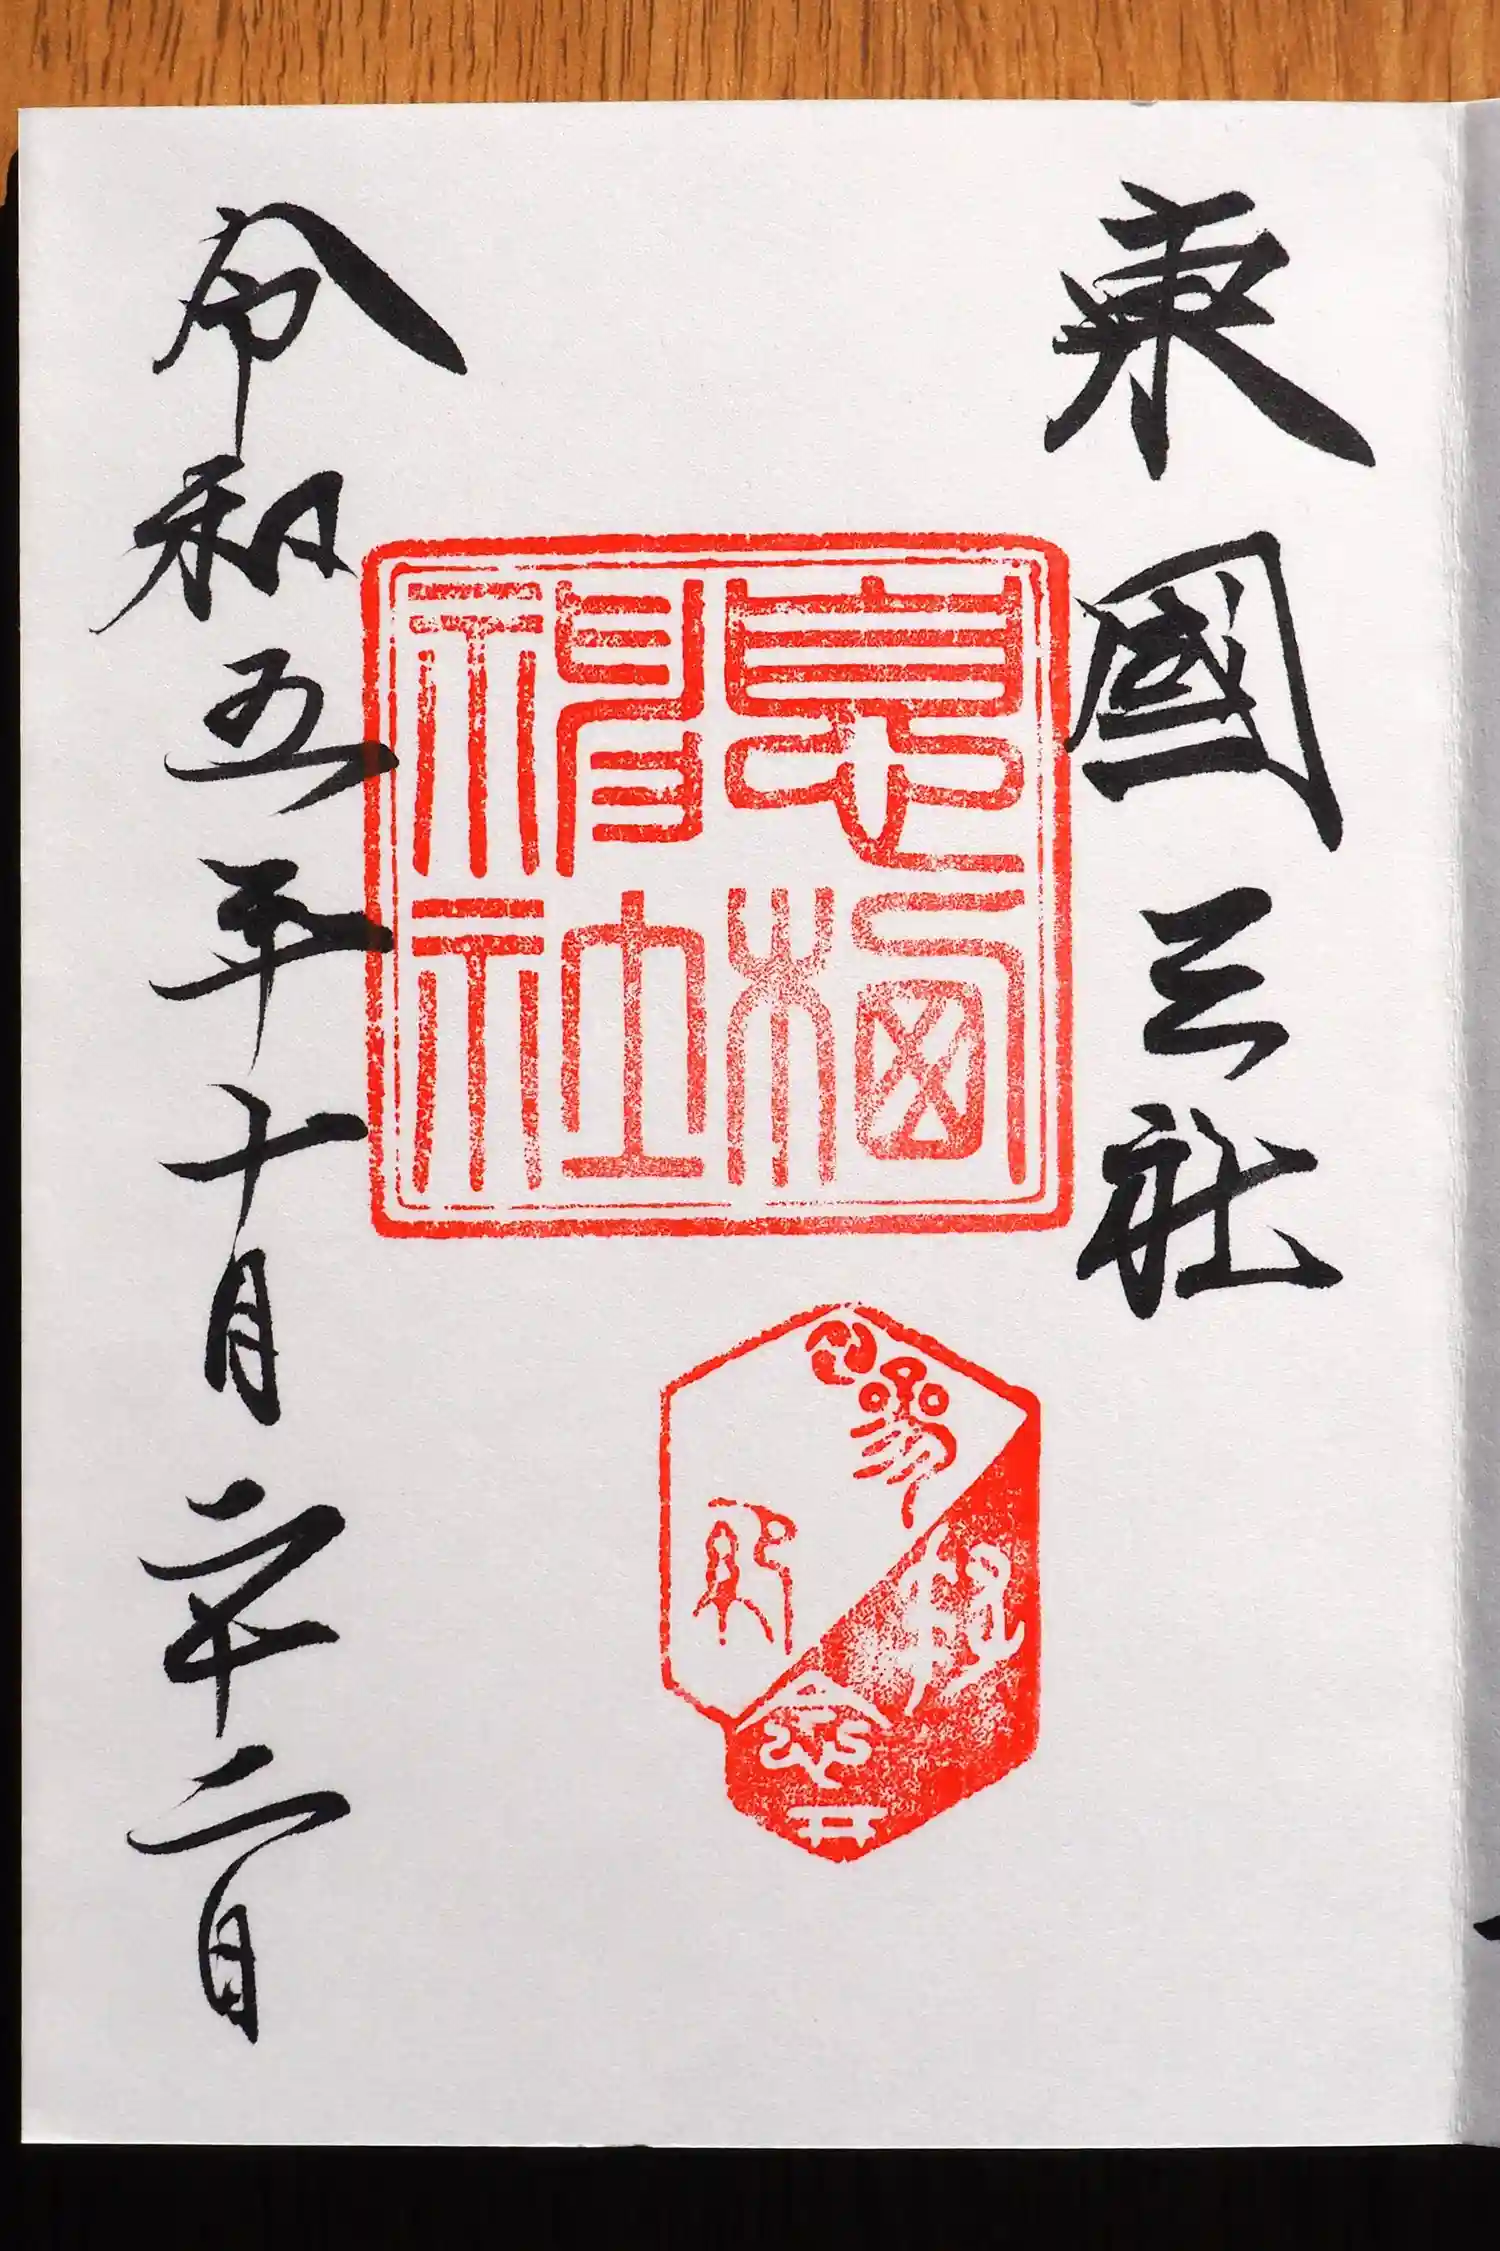 東國三社
息栖
神社
令和五年十月二十二日